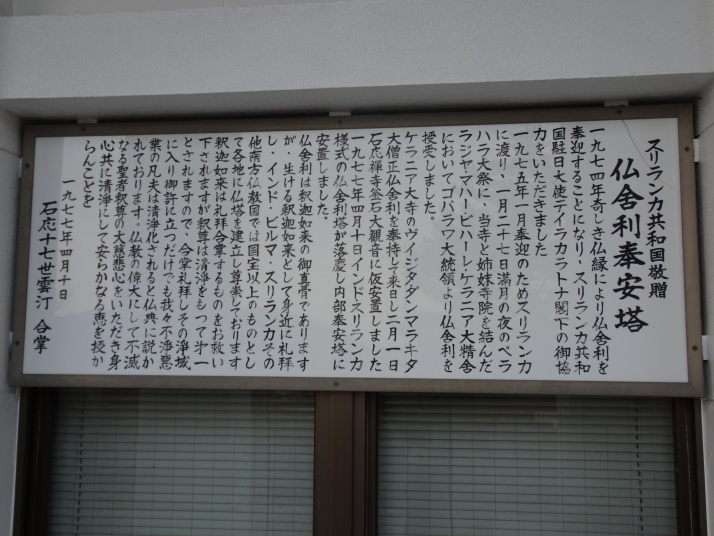 スリランカ共和国敬贈
仏舎利奉安塔
一九七四年奇しき仏縁により仏舎利を
奉迎することになり、スリランカ共和
国駐日大使テイラカラトナ閣下の御協
力をいただきました
一九七五年一月奉迎のためスリランカ
に渡り、一月二十七日満月の夜のペラ
ハラ大祭に、当寺と姉妹寺院を結んだ
ラジャマハー・ビハーレ・ケラニア大精舎
においてゴパラワ大統領より仏舎利を
授受しました。
ケラニア大寺のヴイジダダンマラキタ
大僧正仏舎利を奉持して来日し二月一日
石応禅寺釜石大観音に仮安置しました
一九七七年四月十日インドスリランカ
様式の仏舎利塔が落慶し内部奉安塔に
安置しました。
仏舎利は釈迦如来の御真骨であります
が、生ける釈迦如来として身近に礼拝
し、インド・ビルマ・スリランカその
他南方仏教国では国宝以上のものとし
て各地に仏塔を建立し尊崇しております
釈迦如来は礼拝合掌するものをお救い
下されますが釈尊は清浄をもって才一
とされますので、合掌礼拝しその浄域
に入り御許に立つだけでも我々不浄悪
業の凡夫は清浄化されると仏典に説か
れております。仏教の偉大にして不滅
なる聖者釈尊の大慈悲心をいただき身
心共に清浄にして安らかなる恵を授か
らんことを
一九七七年四月十日
石応十七世雲汀 合掌